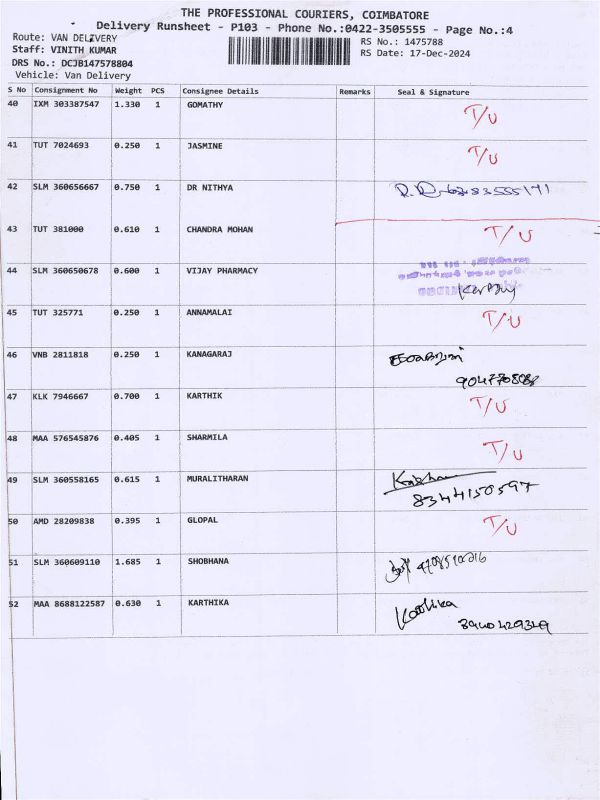 THE PROFESSIONAL COURIERS, COIMBATORE
Delivery Runsheet - P103 - Phone No.:0422-3505555 - Page No.:4
Route: VAN DELIVERY
RS No.: 1475788
Staff: VINITH KUMAR
RS Date: 17-Dec-2024
DRS No.: DCJB147578804
Vehicle: Van Delivery
S No Consignment No Weight PCS Consignee Details Remarks Seal & Signature
40 IXM 303387547 1.330 1 GOMATHY T/U
41 TUT 7024693 0.250 1 JASMINE T/U
42 SLM 360656667 0.750 1 DR NITHYA
43 TUT 381000 0.610 1 CHANDRA MOHAN T/U
44 SLM 360650678 0.600 1 VIJAY PHARMACY
45 TUT 325771 0.250 1 ANNAMALAI T/U
46 VNB 2811818 0.250 1 KANAGARAJ
47 KLK 7946667 0.700 1 KARTHIK T/U
48 MAA 576545876 0.405 1 SHARMILA T/U
49 SLM 360558165 0.615 1 MURALITHARAN
8344150597
50 AMD 28209838 0.395 1 GLOPAL T/U
51 SLM 360609110 1.685 1 SHOBHANA
52 MAA 8688122587 0.630 1 KARTHIKA Karthika
8940429349